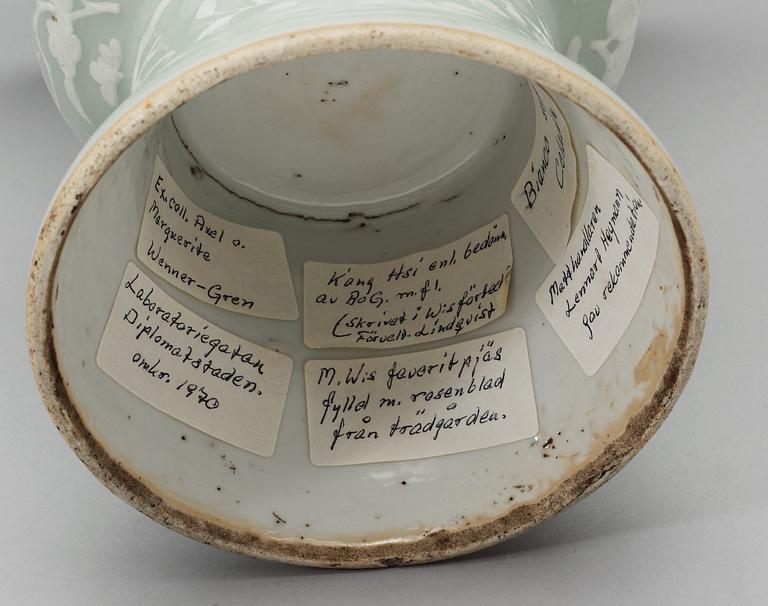 Ex. coll. Axel o.
Marguerite
Wenner-Gren
Laboratoriegatan
Diplomatstaden.
omkr. 1970
K'ang Hsi enl. bedömn.
av BoG. m.fl.
(skrivet i W:s förteckn.
Förvalt. Lindqvist
M. W:s favoritpjäs
fylld m. rosenblad
från trädgården.
Bianco
Matthandlaren
Lennart Heymann
gav rekommendation